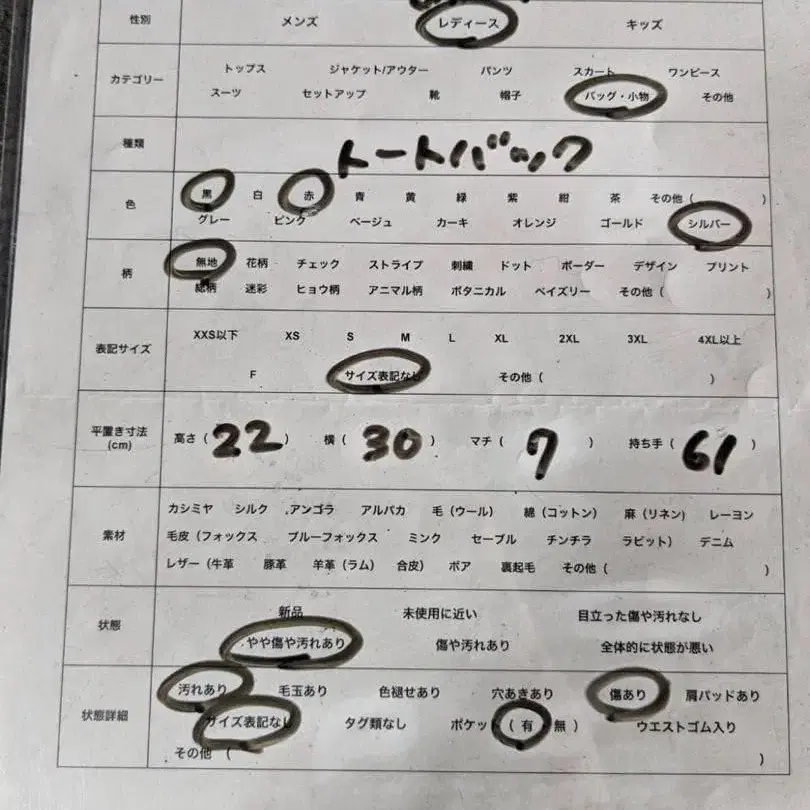 性別 メンズ レディース キッズ
カテゴリー トップス ジャケット/アウター パンツ スカート ワンピース
スーツ セットアップ 靴 帽子 バッグ・小物 その他
種類 トートバック
色 黒 白 赤 青 黄 緑 紫 紺 茶 その他( )
グレー ピンク ベージュ カーキ オレンジ ゴールド シルバー
柄 無地 花柄 チェック ストライプ 刺繍 ドット ボーダー デザイン プリント
総柄 迷彩 ヒョウ柄 アニマル柄 ボタニカル ペイズリー その他( )
表記サイズ XXS以下 XS S M L XL 2XL 3XL 4XL以上
F サイズ表記なし その他( )
平置き寸法 高さ(22) 横(30) マチ(7) 持ち手(61)
(cm)
カシミヤ シルク アンゴラ アルパカ 毛(ウール) 綿(コットン) 麻(リネン) レーヨン
素材 毛皮(フォックス ブルーフォックス ミンク セーブル チンチラ ラビット) デニム
レザー(牛革 豚革 羊革(ラム) 合皮) ボア 裏起毛 その他( )
状態 新品 未使用に近い 目立った傷や汚れなし
やや傷や汚れあり 傷や汚れあり 全体的に状態が悪い
汚れあり 毛玉あり 色褪せあり 穴あきあり 傷あり 肩パッドあり
状態詳細 サイズ表記なし タグ類なし ポケット(有・無) ウエストゴム入り
その他( )